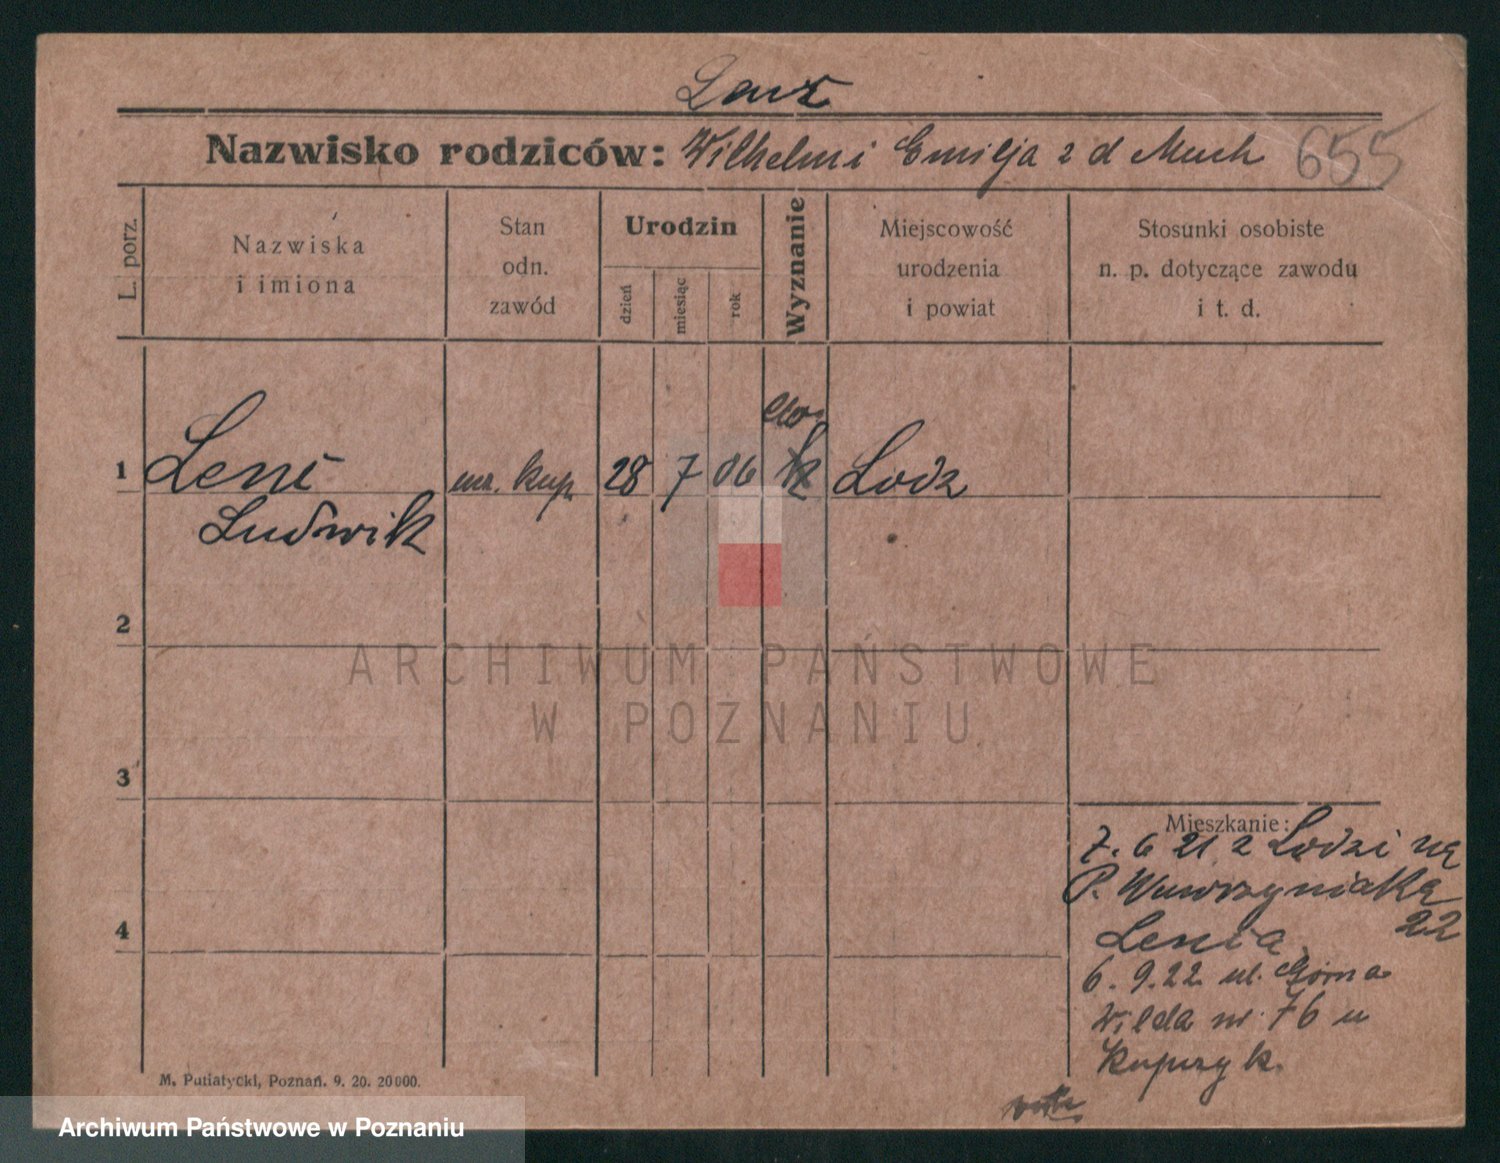 Nazwisko rodziców: Wilhelm i Emilja z d Much 655
L. porz.
Nazwiska
i imiona
Stan
odn.
zawód
Urodzin
dzień
miesiąc
rok
Wyznanie
Miejscowość
urodzenia
i powiat
Stosunki osobiste
n. p. dotyczące zawodu
i t. d.
1 ucz. kup. 28 7 06 k Lodz
Ludwik
2
3
4
Mieszkanie:
7. 6 21 z Lodzi na
P. Wawrzyniaka
22
6. 9. 22 ul. Górna
Wilda nr. 76 u
Kupczyk.
M. Putiatycki, Poznań. 9. 20. 20000.
ARCHIWUM PAŃSTWOWE
W POZNANIU
Archiwum Państwowe w Poznaniu